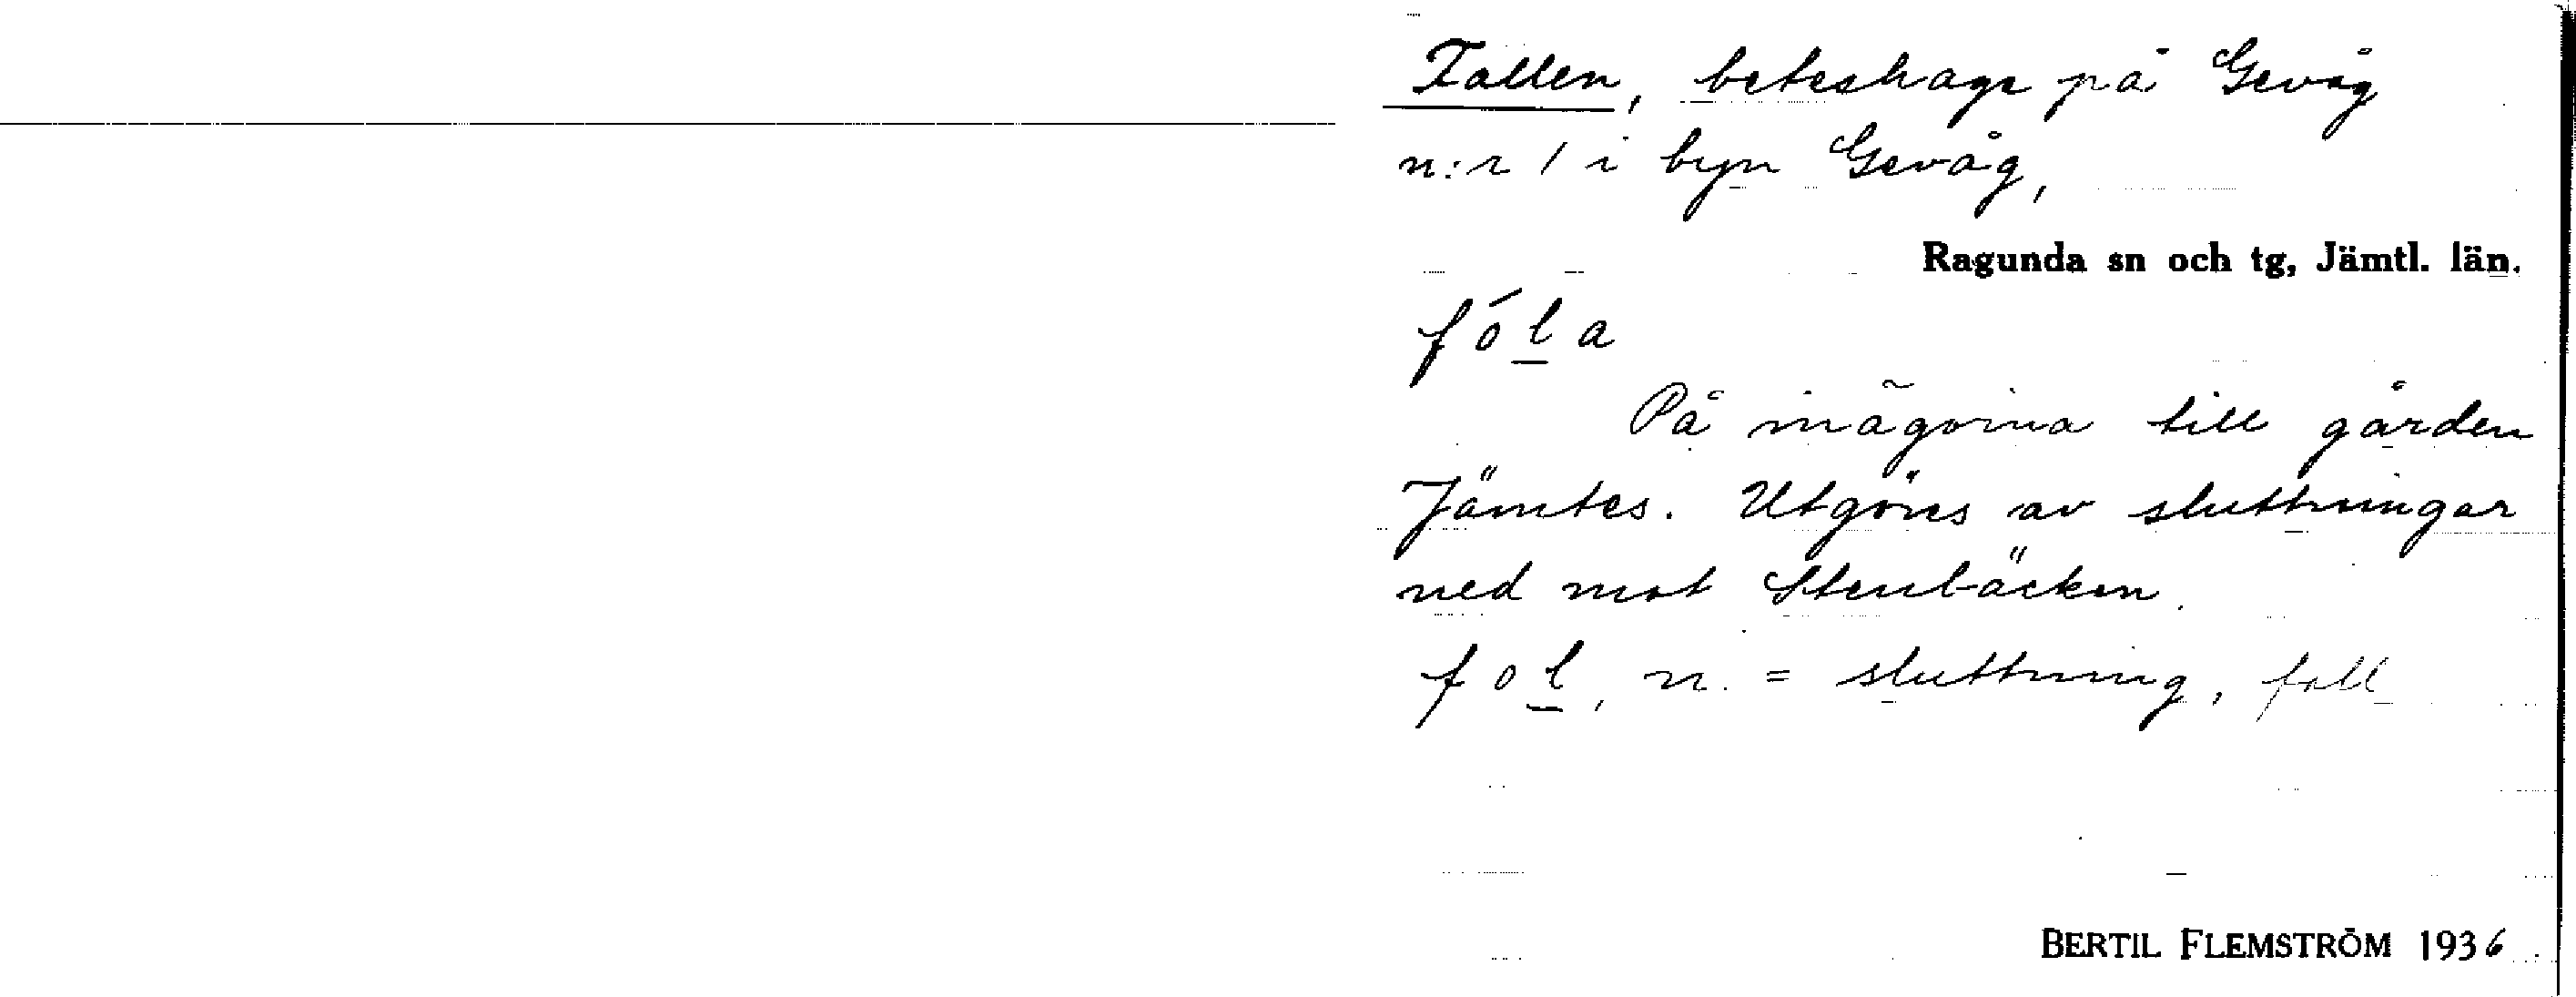 Fallen, beteshage på Gevåg
n:r 1 i byn Gevåg,
Ragunda sn och tg, Jämtl. län.
fóla
På inägorna till gården
Jämtes. Utgöres av sluttningar
ned mot Stenbäcken.
fol, n. = sluttning, fall
BERTIL FLEMSTRÖM 1936